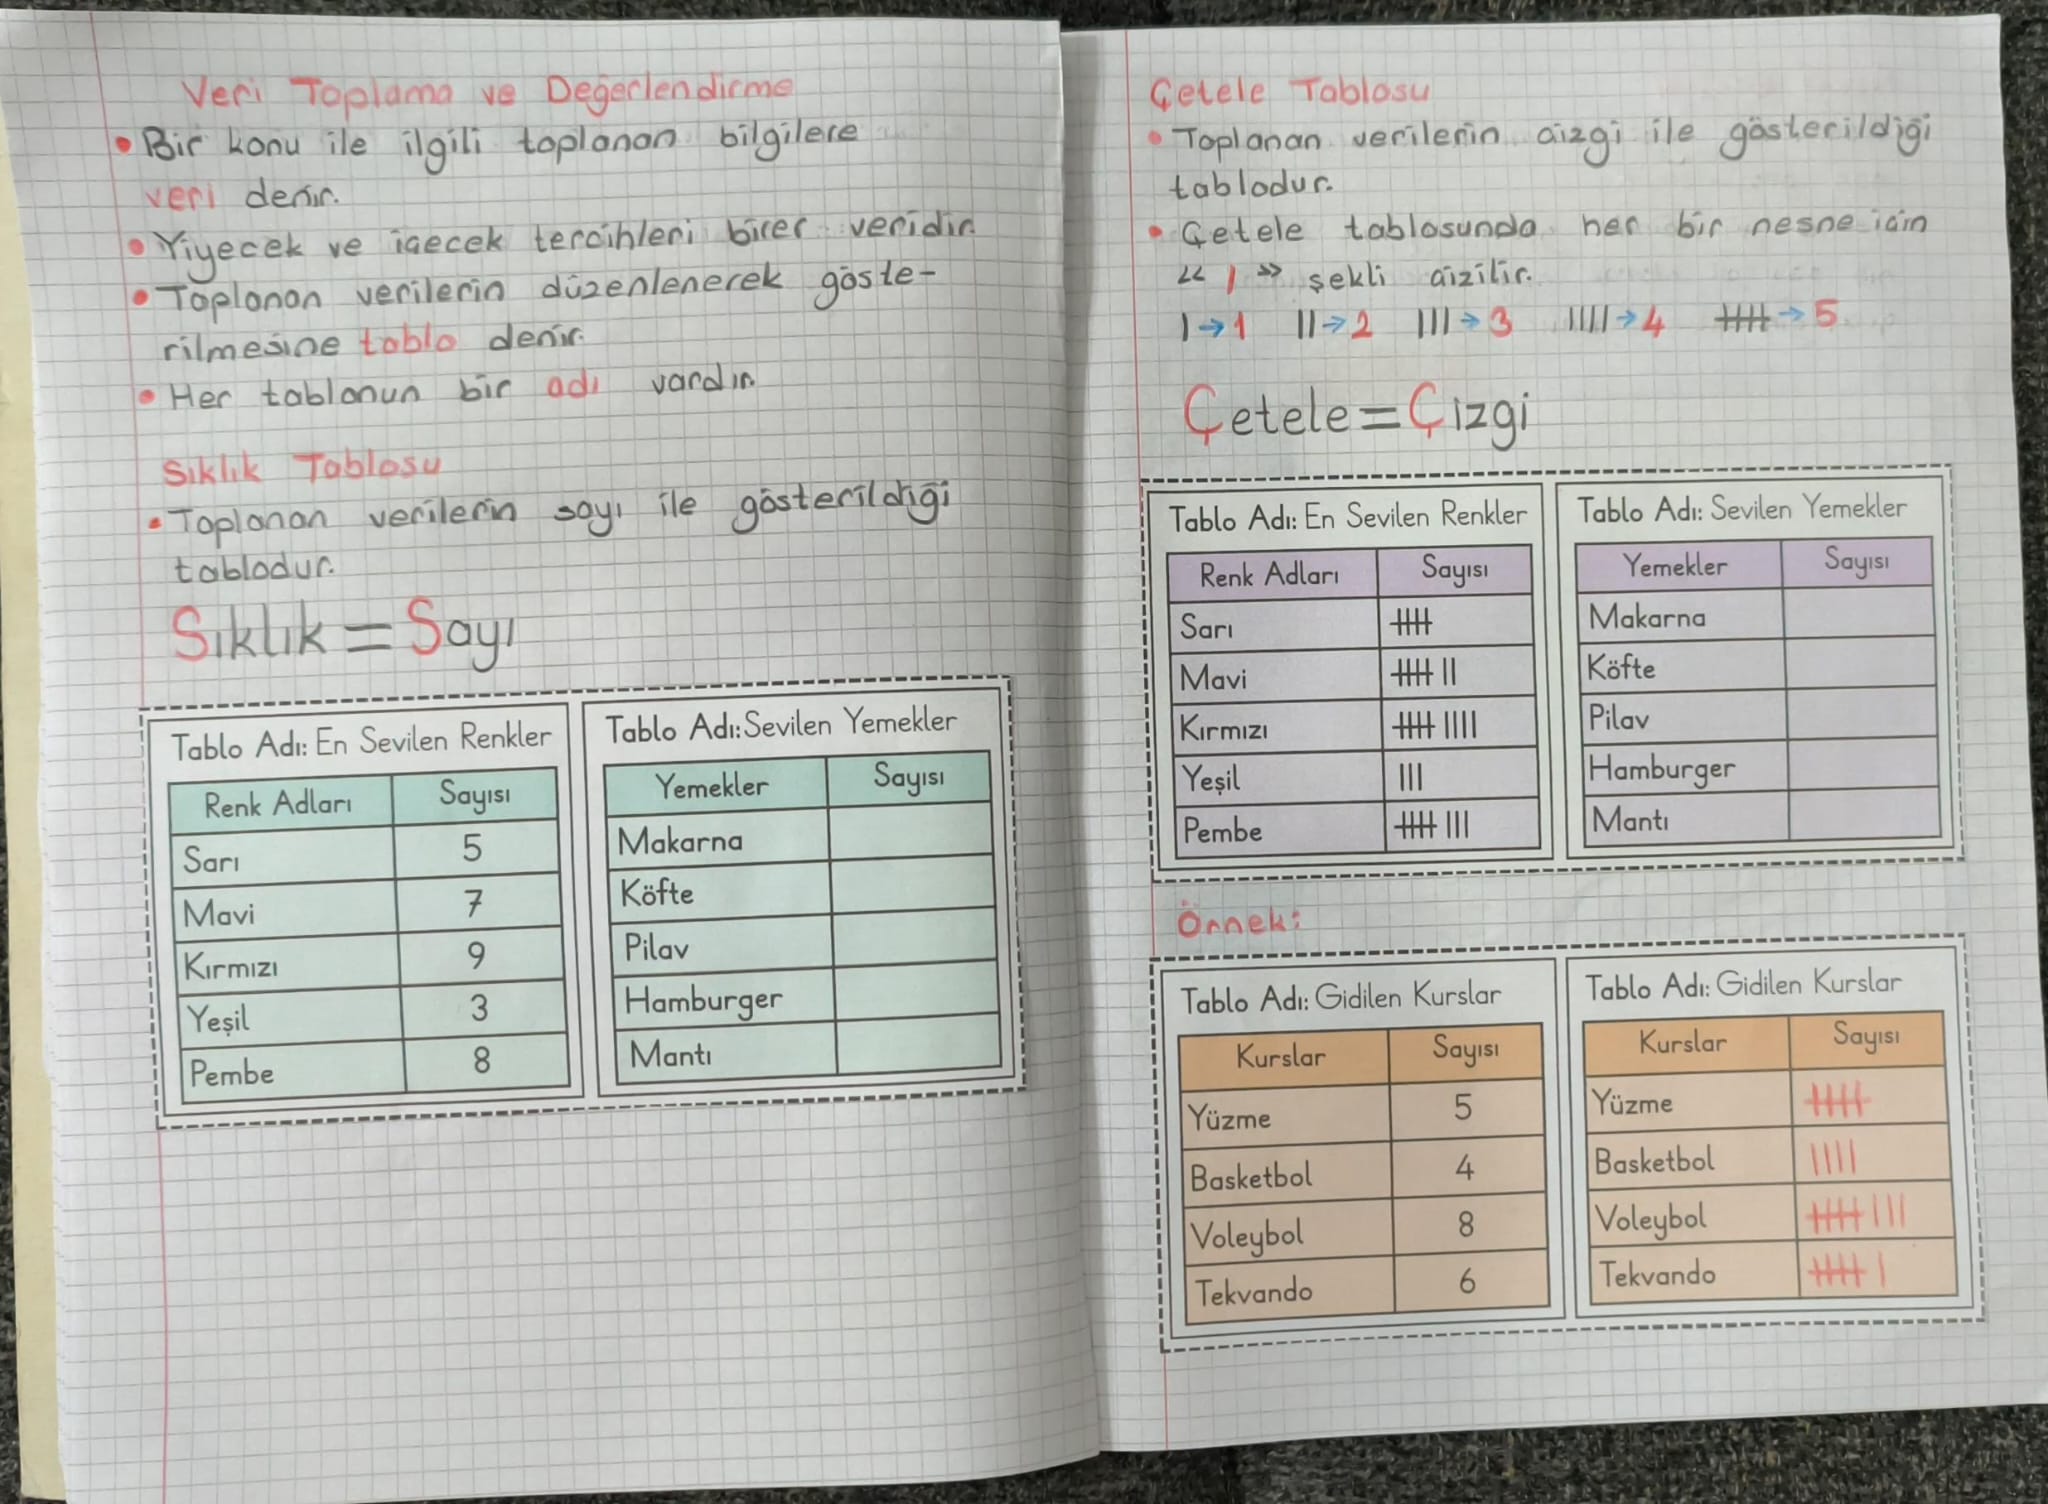 Veri Toplama ve Değerlendirme
• Bir konu ile ilgili toplanan bilgilere
veri denir.
• Yiyecek ve içecek tercihleri birer veridir.
• Toplanan verilerin düzenlenerek göste-
rilmesine tablo denir.
• Her tablonun bir adı vardır.
Sıklık Tablosu
• Toplanan verilerin sayı ile gösterildiği
tablodur.
Sıklık = Sayı
Tablo Adı: En Sevilen Renkler
Renk Adları Sayısı
Sarı 5
Mavi 7
Kırmızı 9
Yeşil 3
Pembe 8
Tablo Adı: Sevilen Yemekler
Yemekler Sayısı
Makarna
Köfte
Pilav
Hamburger
Mantı
Çetele Tablosu
• Toplanan verilerin çizgi ile gösterildiği
tablodur.
• Çetele tablosunda her bir nesne için
" | " şekli çizilir.
| → 1 || → 2 ||| → 3 |||| → 4 卌 → 5
Çetele = Çizgi
Tablo Adı: En Sevilen Renkler
Renk Adları Sayısı
Sarı 卌
Mavi 卌 ||
Kırmızı 卌 ||||
Yeşil |||
Pembe 卌 |||
Tablo Adı: Sevilen Yemekler
Yemekler Sayısı
Makarna
Köfte
Pilav
Hamburger
Mantı
Örnek:
Tablo Adı: Gidilen Kurslar
Kurslar Sayısı
Yüzme 5
Basketbol 4
Voleybol 8
Tekvando 6
Tablo Adı: Gidilen Kurslar
Kurslar Sayısı
Yüzme 卌
Basketbol ||||
Voleybol 卌 |||
Tekvando 卌 |